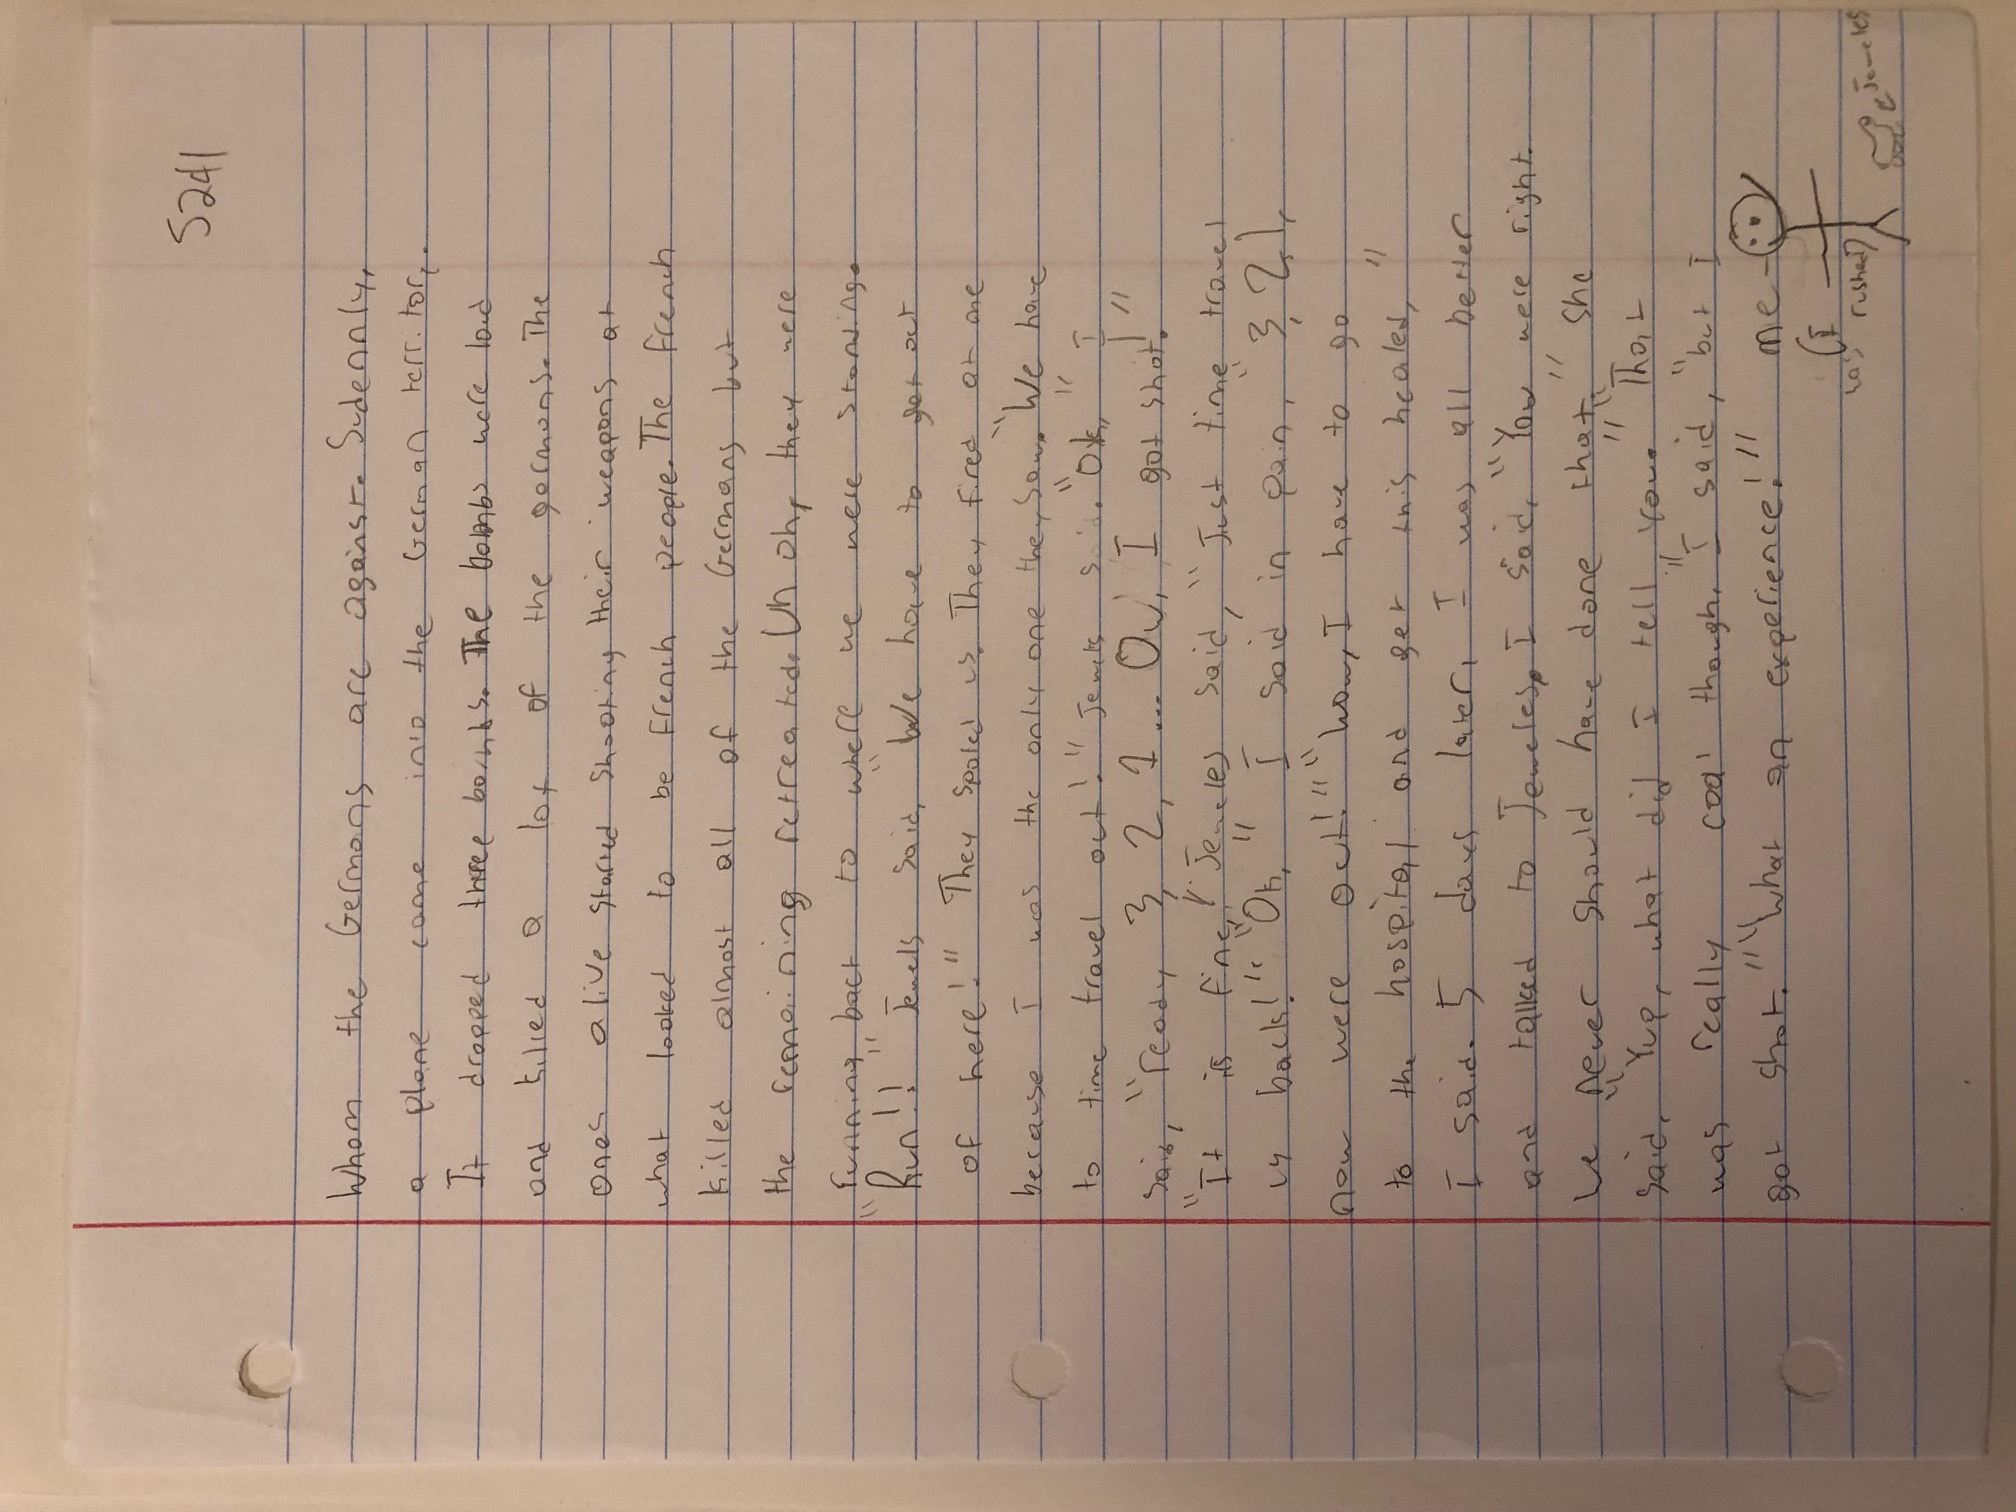 5241
Whom the Germans are against. Sudennly,
a plane came into the German territory.
It dropped three bombs. The bombs were loud
and killed a lot of the germans. The
ones alive started shooting their weapons at
what looked to be French people. The French
killed almost all of the Germans but
the remaining retreated. Uh oh, they were
running back to where we were standing.
"Run!!" Jewels said, "We have to get out
of here!" They spoted us. They fired at me
because I was the only one they saw. "We have
to time travel out!" Jewels said. "Ok," I
said, "ready 3, 2, 1... Ow, I got shot!"
"It is fine!" Jeweles said, "Just time travel
us back!" "Ok," I said in pain, "3, 2, 1,
now were out!" "wow, I have to go
to the hospital and get this healed,"
I said. 5 days later, I was all better
and talked to Jeweles. I said, "You were right.
We never should have done that." She
said, "Yup, what did I tell you." "That
was really cool though," I said, "but I
got shot." "What an experience!" me
(I
was rushed) Jeweles